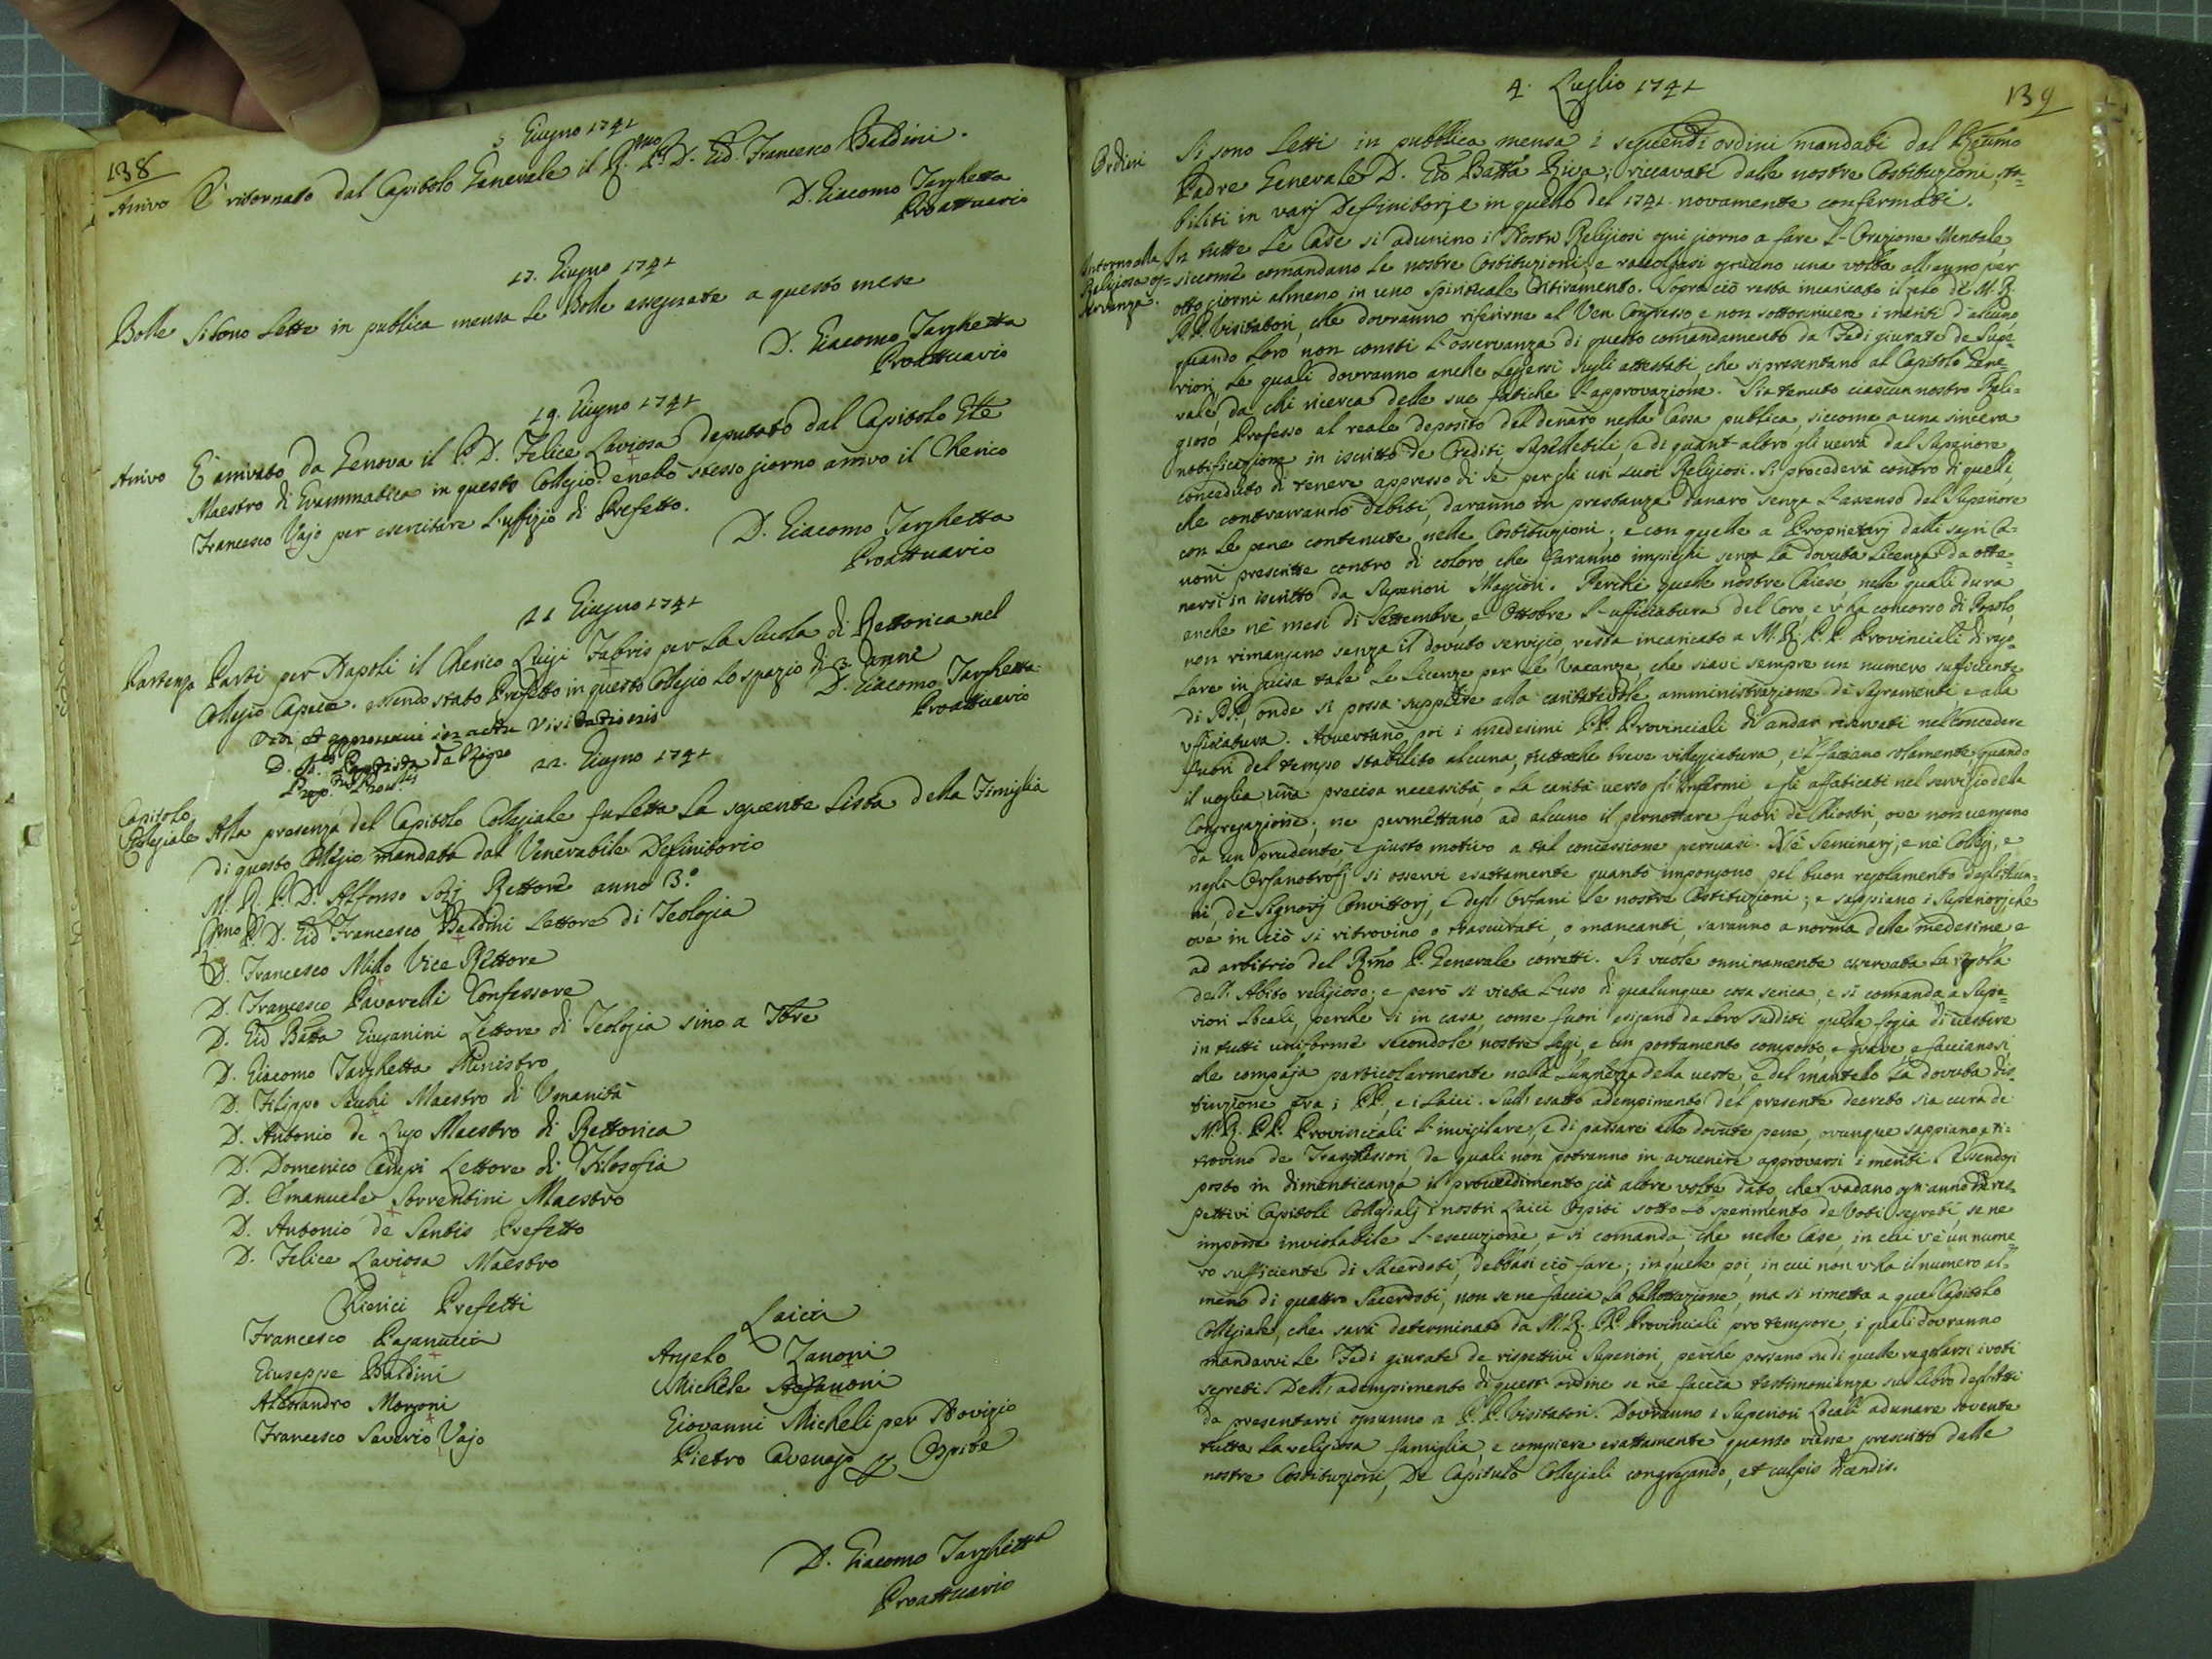 138
3. Giugno 1741
Arrivo È ritornato dal Capitolo Generale il R.mo P. D. Gio. Francesco Baldini.
D. Giacomo Targhetta
Proattuario
17. Giugno 1741
Bolle Si sono Lette in publica mensa le Bolle assegnate a questo mese
D. Giacomo Targhetta
Proattuario
19. Giugno 1741
Arrivo È arrivato da Genova il P. D. Felice Laviosa deputato dal Capitolo Gle
Maestro di Grammatica in questo Collegio: e nello stesso giorno arrivò il Cherico
Francesco Vajo per esercitare l'uffizio di Prefetto.
D. Giacomo Targhetta
Proattuario
21 Giugno 1741
Partenza Partì per Napoli il Cherico Luigi Fabris per la Scuola di Rettorica nel
Collegio Capece. essendo stato Prefetto in questo Collegio lo spazio di 3. anni
D. Giacomo Targhetta
Proattuario
Vidi et approbavi in actu Visitationis
22. Giugno 1741
Capitolo
Collegiale Alla presenza del Capitolo Collegiale fu Letta la seguente Lista della Fimiglia
di questo Collegio mandata dal Venerabile Definitorio
M. R. P. D. Alfonso Sozj Rettore anno 3.º
Rmo P. D. Gio Francesco Baldini Lettore di Teologia
D. Francesco Millo Vice Rettore
D. Francesco Pavarelli Confessore
D. Gio Batta Giuganini Lettore di Teologia sino a 7bre
D. Giacomo Targhetta Ministro
D. Filippo Sacchi Maestro di Umanità
D. Antonio de Lugo Maestro di Rettorica
D. Domenico Campi Lettore di Filosofia
D. Emanuele Sorrentini Maestro
D. Antonio de Santis Prefetto
D. Felice Laviosa Maestro
Chierici Prefetti
Francesco Paganucci
Giuseppe Baldini
Alessandro Morzoni
Francesco Saverio Vajo
Laici
Angelo Zanoni
Michele Stefanoni
Giovanni Micheli per Novizio
Pietro Cavenago p Ospite
D. Giacomo Targhetta
Proattuario
139
4. Luglio 1741
Ordini Si sono Letti in pubblica mensa i seguenti ordini mandati dal Rmo
Padre Generale D. Gio Batta Riva; riccavati dalle nostre Costituzioni, sta-
biliti in varj Definitorj, e in quello del 1741 novamente confermati.
Intorno alla
Religiosa os-
servanza.
In tutte le Case si adunino i Nostri Religiosi ogni giorno a fare l'Orazione Mentale,
siccome comandano le nostre Costituzioni; e raccolgasi ognuno una volta all'anno per
otto giorni almeno in uno Spirituale Ritiramento. Sopra ciò resta incaricato il zelo de' M. R.
P.P. Visitatori, che dovranno riferirne al Ven Congresso, e non sottoscrivere i meriti d'alcuno,
quando loro non consti l'osservanza di questo comandamento da Fedi giurate de Supe-
riori, le quali dovranno anche Leggersi sugli attestati, che si presentano al Capitolo Gene-
rale, da chi ricerca delle sue fatiche l'approvazione. Sia tenuto ciascun nostro Reli-
gioso Professo al reale deposito del denaro nella Cassa publica, siccome a una sincera
notificazione in iscritto de Crediti, Supellettili, e di quant'altro gli verrà dal Superiore
conceduto di tenere appresso di se per gli usi suoi Religiosi. Si procederà contro di quelli,
che contrarranno debiti, daranno in prestanza danaro senza l'assenso del Superiore
con le pene contenute nelle Costituzioni; e con quelle a Proprietarj dalli sagri Ca-
noni prescritte contro di coloro, che faranno impieghi senza la dovuta Licenza da otte-
nersi in iscritto da Superiori Maggiori. Perchè quelle nostre Chiese, nelle quali dura
anche ne' mesi di Settembre, e Ottobre l'ufficiatura del Coro, e v'ha concorso di Popolo,
non rimangano senza il dovuto servigio, resta incaricato a M. R. P. P. Provinciali di rego-
lare in guisa tale le Licenze per le Vacanze, che siavi sempre un numero sufficiente
di PP., onde si possa supplire alla caritatevole amministrazione de Sagramenti, e alla
ufficiatura. Avvertano poi i medesimi PP. Provinciali di andar riservati nel concedere
fuori del tempo stabilito alcuna, tuttochè breve villeggiatura, e 'l facciano solamente, quando
il voglia una precisa necessità, o la carità verso gl'Infermi, e gli affaticati nel servigio della
Congregazione; ne permettano ad alcuno il pernottare fuori de Chiostri, ove non vengano
da un prudente, e giusto motivo a tal concessione persuasi. Ne' Seminarj, e ne' Collegj, e
negli Orfanotrofj si osservi esattamente quanto impongono pel buon regolamento degli Alun-
ni, de' Signori Convittorj, e degl'Orfani le nostre Costituzioni; e sappiano i Superiori, che
ove in ciò si ritrovino o trascurati, o mancanti, saranno a norma delle medesime e
ad arbitrio del Rmo P. Generale corretti. Si vuole onninamente osservata la regola
dell'Abito religioso; e però si vieta l'uso di qualunque cosa serica, e si comanda a Supe-
riori Locali, perchè sì in casa, come fuori esigano da Loro sudditi quella fogia di vestire
in tutti uniforme secondo le nostre Leggi, e un portamento composto, e grave, e facciano sì,
che compaja particolarmente nella lunghezza della veste, e del mantello la dovuta dis-
tinzione fra i PP., e i Laici. Sull'esatto adempimento del presente decreto sia cura de
M. R. PP. Provinciali l'invigilare, e di passare alle dovute pene, ovunque sappiano, e ri-
trovino de Trasgressori, de quali non potranno in avvenire approvarsi i meriti. Essendosi
posto in dimenticanza il provedimento già altre volte dato, che vadano ogn'anno ne res-
pettivi Capitoli Collegialj i nostri Laici Ospiti sotto lo sperimento de Voti segreti, se ne
impone inviolabile l'esecuzione, e si comanda, che nelle Case, in cui v'è un nume-
ro sufficiente di Sacerdoti, debbasi ciò fare; in quelle poi, in cui non v'ha il numero al-
meno di quattro Sacerdoti, non se ne faccia la ballottazione, ma si rimetta a quel Capitolo
Collegiale, che sarà determinato da M. R. PP. Provinciali pro tempore, i quali dovranno
mandarvi le Fedi giurate de rispettivi Superiori, perchè possano su di quelle regolarsi i voti
segreti. Dell'adempimento di quest'ordine se ne faccia testimonianza sul Libro degli Atti
da presentarsi ognanno a P.P. Visitatori. Dovranno i Superiori Locali adunare sovente
tutta la religiosa famiglia, e compiere esattamente quanto viene prescritto dalle
nostre Costituzioni, De Capitulo Collegiali congregando, et culpis dicendis.